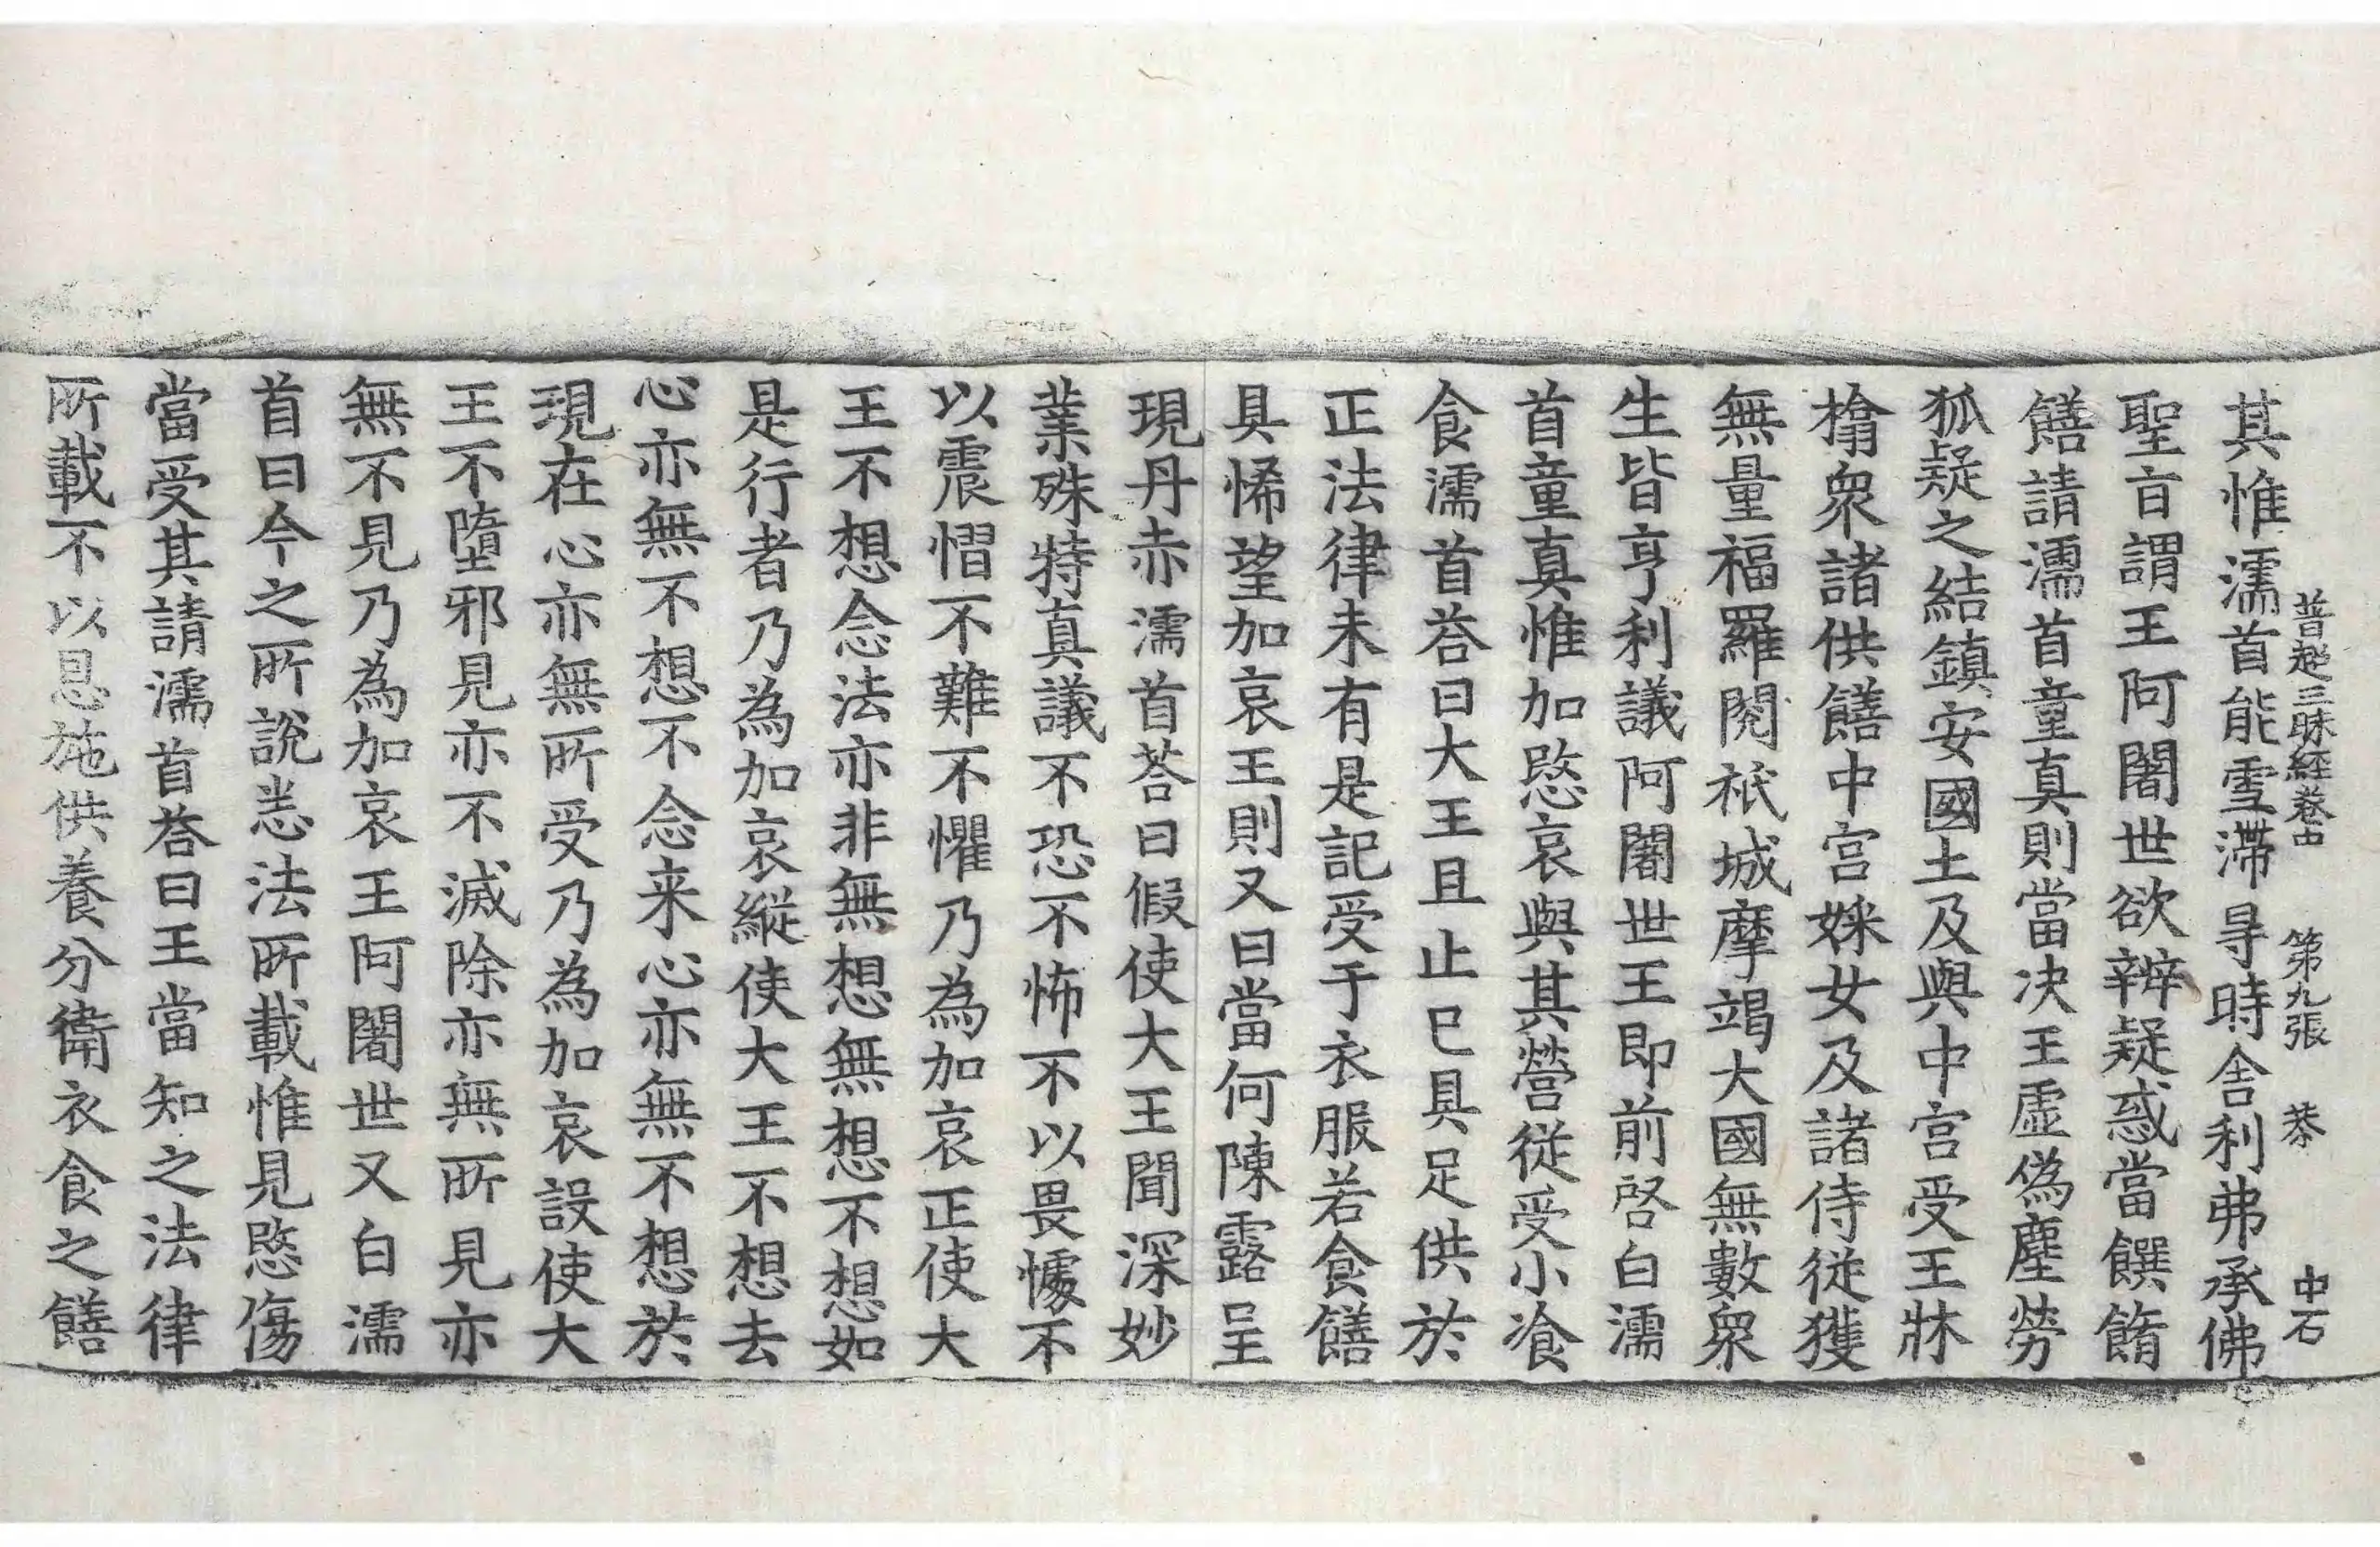 普超三昧經卷中 第九張 恭 中石
其惟濡首能雪滯尋時舍利弗承佛
聖言謂王阿闍世欲辨疑惑當饌餚
饍請濡首童真則當決王虛偽塵勞
狐疑之結鎮安國土及與中宮受王牀
榻眾諸供饍中宮婇女及諸侍從獲
無量福羅閱祇城摩竭大國無數眾
生皆亨利議阿闍世王即前啓白濡
首童真惟加愍哀與其營從受小飡
食濡首荅曰大王且止已具足供於
正法律未有是記受于衣服若食饍
具悕望加哀王則又曰當何陳露呈
現丹赤濡首荅曰假使大王聞深妙
業殊特真議不恐不怖不以畏懅不
以震慴不難不懼乃為加哀正使大
王不想念法亦非無想無想不想如
是行者乃為加哀縱使大王不想去
心亦無不想不念来心亦無不想於
現在心亦無所受乃為加哀設使大
王不墮邪見亦不滅除亦無所見亦
無不見乃為加哀王阿闍世又白濡
首曰今之所說恙法所載惟見愍傷
當受其請濡首荅曰王當知之法律
所載不以恩施供養分衛衣食之饍